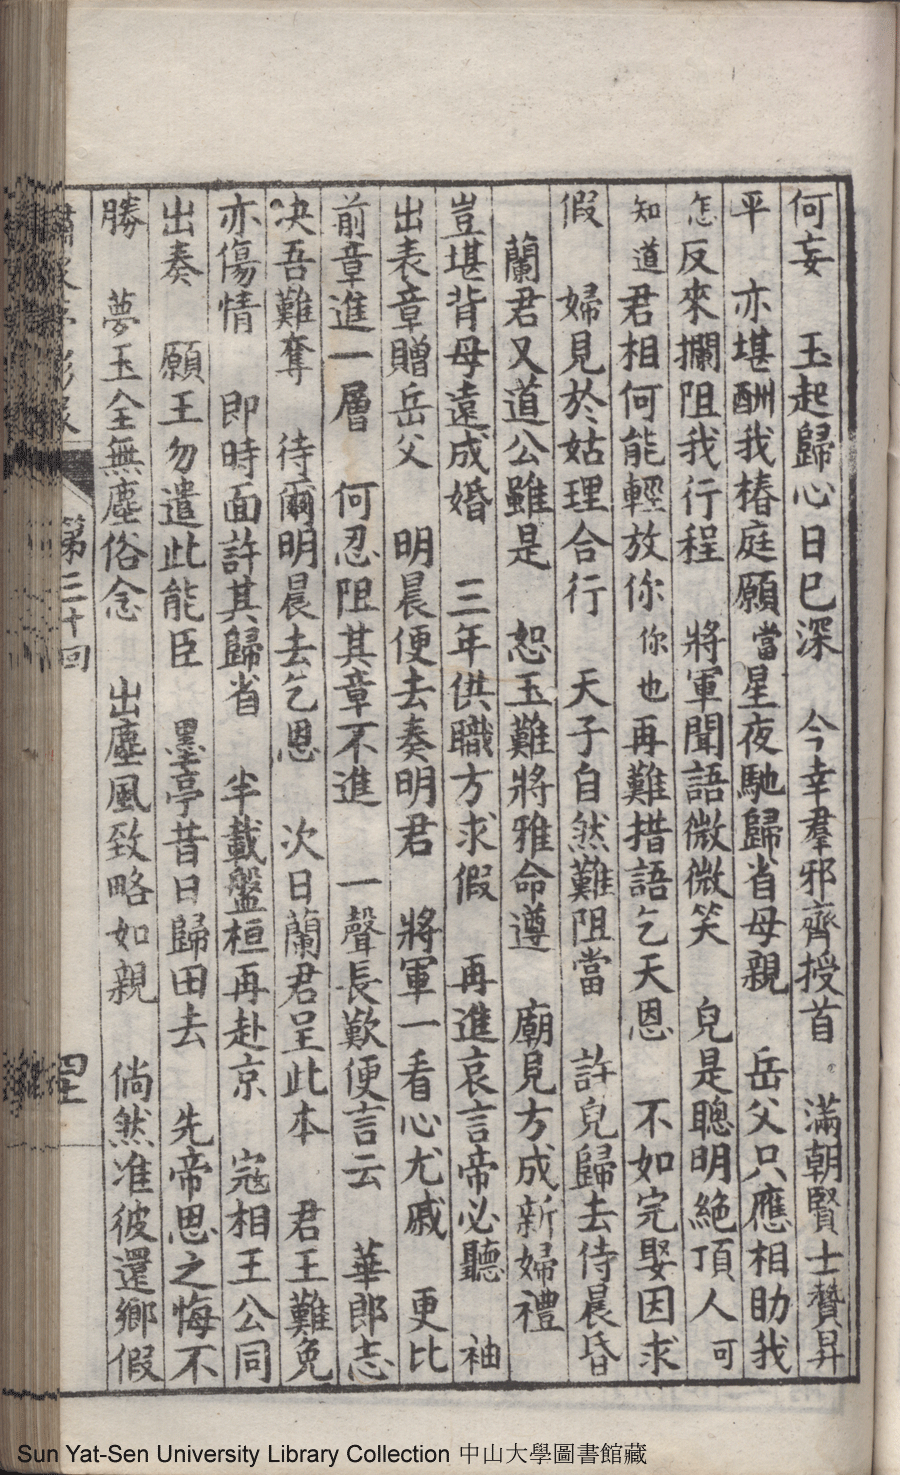 何妄　玉起歸心日巳深　今幸羣邪齊授首　滿朝賢士贊昇
平　亦堪酬我椿庭願　當星夜馳歸省母親　岳父只應相助我
怎反來攔阻我行程　將軍聞語微微笑　皃是聰明絶頂人　可
知道君相何能輕放你　你也再難措語乞天恩　不如完娶因求
假　婦見於姑理合行　天子自然難阻當　許皃歸去侍晨昏
蘭君又道公雖是　恕玉難將雅命遵　廟見方成新婦禮
豈堪背母遠成婚　三年供職方求假　再進哀言帝必聽　袖
出表章贈岳父　明晨便去奏明君　將軍一看心尤戚　更比
前章進一層　何忍阻其章不進　一聲長歎便言云　華郎志
决吾難奪　待爾明晨去乞恩　次日蘭君呈此本　君王難免
亦傷情　即時面許其歸省　半載盤桓再赴京　寇相王公同
出奏　願王勿遣此能臣　墨亭昔日歸田去　先帝思之悔不
勝　夢玉全無塵俗念　出塵風致略如親　倘然准彼還鄉假
第三十回
Sun Yat-Sen University Library Collection 中山大學圖書館藏